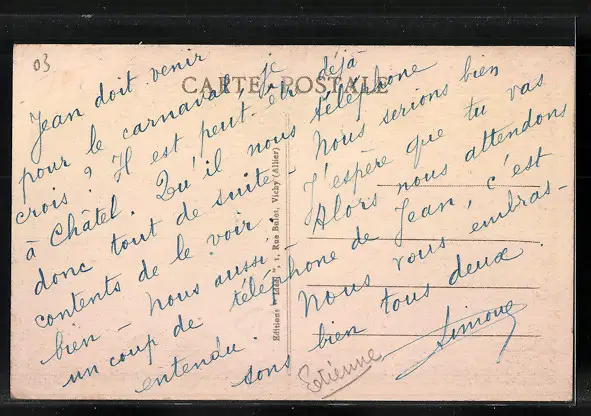 03
CARTE POSTALE
Jean doit venir
pour le carnaval, je
crois ? Il est peut-être déjà
à Châtel. Qu'il nous téléphone
donc tout de suite - Nous serions bien
contents de le voir. J'espère que tu vas
bien - Nous aussi. Alors nous attendons
un coup de téléphone de Jean, c'est
entendu. Nous vous embras-
sons bien tous deux
Simone
Etienne
Editions 1, Rue Bulot, Vichy (Allier)